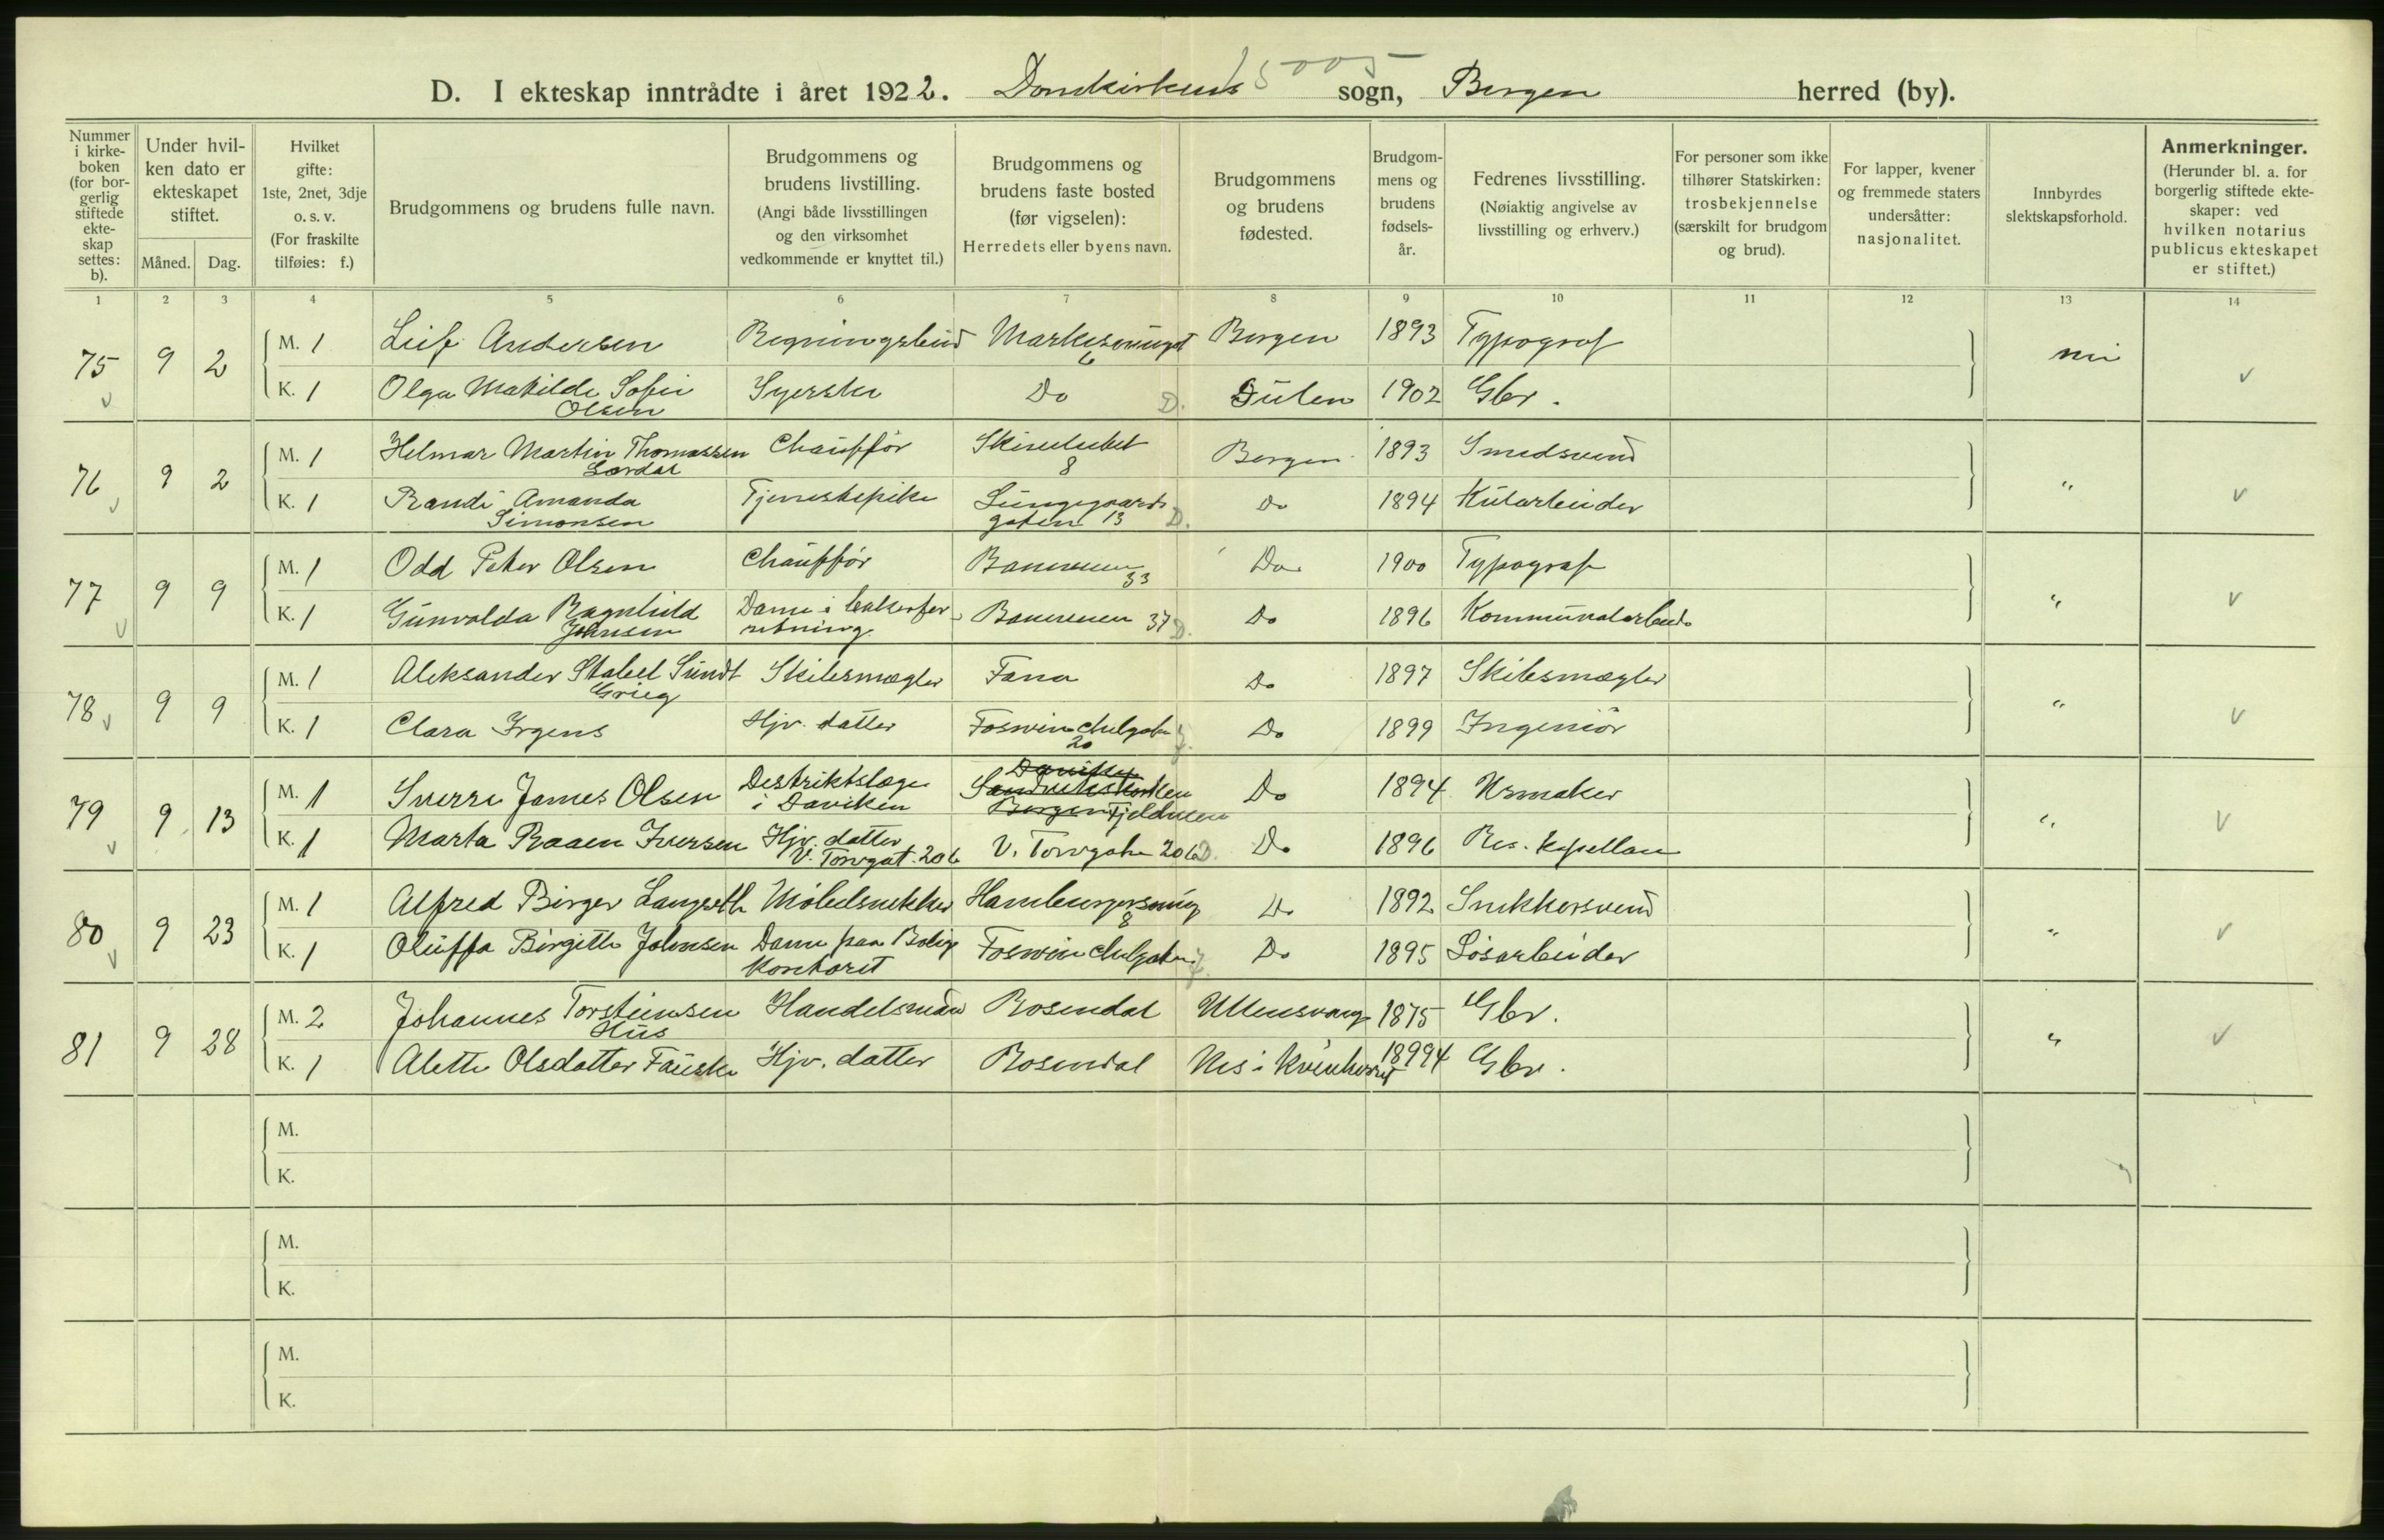 15005
D. I ekteskap inntrådte i året 1922. Domkirkens sogn, Bergen herred (by).
Nummer i kirkeboken (for borgerlig stiftede ekteskap settes: b).
Under hvilken dato er ekteskapet stiftet.
Måned. Dag.
Hvilket gifte: 1ste, 2net, 3dje o. s. v. (For fraskilte tilføies: f.)
Brudgommens og brudens fulle navn.
Brudgommens og brudens livstilling. (Angi både livsstillingen og den virksomhet vedkommende er knyttet til.)
Brudgommens og brudens faste bosted (før vigselen): Herredets eller byens navn.
Brudgommens og brudens fødested.
Brudgommens og brudens fødsels-år.
Fedrenes livsstilling. (Nøiaktig angivelse av livsstilling og erhverv.)
For personer som ikke tilhører Statskirken: trosbekjennelse (særskilt for brudgom og brud).
For lapper, kvener og fremmede staters undersåtter: nasjonalitet.
Innbyrdes slektskapsforhold.
Anmerkninger. (Herunder bl. a. for borgerlig stiftede ekteskaper: ved hvilken notarius publicus ekteskapet er stiftet.)
1 2 3 4 5 6 7 8 9 10 11 12 13 14
75 9 2 M. 1 Leif Andersen Regningsbud Markesmuget 6 Bergen 1893 Typograf nei
K. 1 Olga Matilde Sofie Olsen Syerske Do D. Gulen 1902 Gbr. v
76 9 2 M. 1 Helmar Martin Thomassen Lærdal Chauffør Skivebakken 8 Bergen 1893 Smedsvend "
K. 1 Randi Amanda Simonsen Tjenestepike Lungegaardsgaten 13 D. Do 1894 Kularbeider v
77 9 9 M. 1 Odd Peter Olsen Chauffør Baneveien 33 Do 1900 Typograf "
K. 1 Gunvalda Ragnhild Johnsen Dame i kakkerforretning Baneveien 37 D. Do 1896 Kommunalarbeid. v
78 9 9 M. 1 Aleksander Stabel Sundt Grieg Skibsmægler Fana Do 1897 Skibsmægler "
K. 1 Clara Irgens Hjv. datter Foswinckelgaten 20 J. Do 1899 Ingeniør v
79 9 13 M. 1 Sverre James Olsen Destriktslæge i Daviken Daviken Bergen Fjeldveien Do 1894 Urmaker "
K. 1 Marta Raaen Iversen Hjv. datter V. Torvgat. 20b V. Torvgate 20b D. Do 1896 Res. kapellan v
80 9 23 M. 1 Alfred Birger Langseth Møbelsnekker Hamburgersmug 8 Do 1892 Snekkersvend "
K. 1 Oluffa Birgitte Johnsen Dame paa Boligkontoret Foswinckelgaten J. Do 1895 Løsarbeider v
81 9 28 M. 2 Johannes Torsteinsen Hus Handelsmand Rosendal Ullensvang 1875 Gbr. "
K. 1 Alette Olsdatter Fauske Hjv. datter Rosendal Nes i Kvinherred 18994 Gbr. v
M.
K.
M.
K.
M.
K.